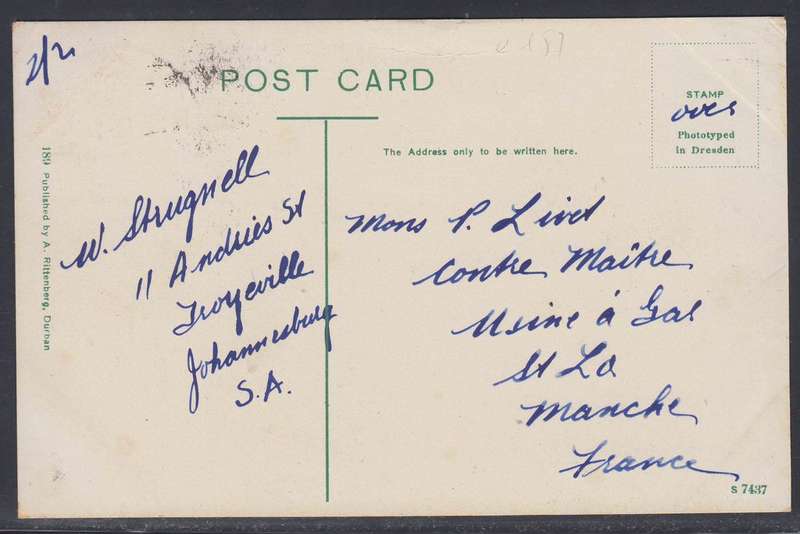 POST CARD
STAMP
over
Phototyped
in Dresden
The Address only to be written here.
189 Published by A. Rittenberg, Durban
W. Strugnell
11 Andries St
Troyeville
Johannesburg
S.A.
Mons P. Livet
Contre Maître
Usine à Gas
St Lo
Manche
France
S 7437